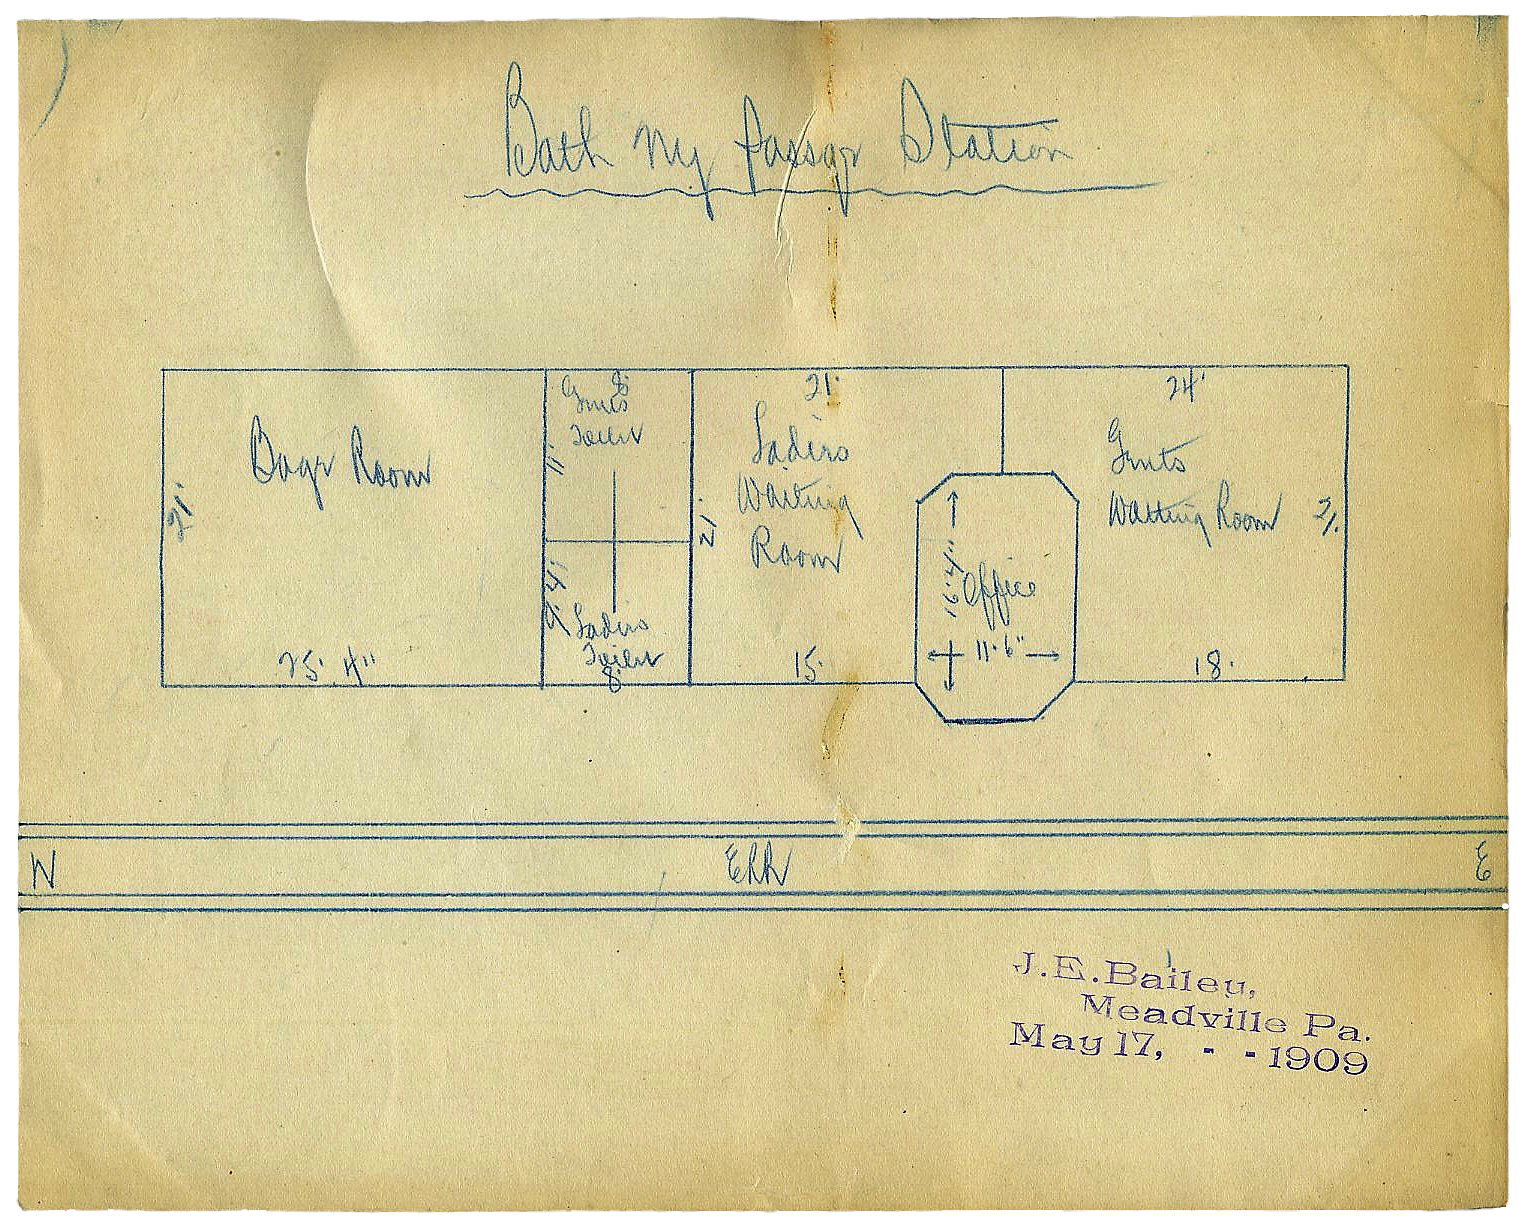 Bath NY Passgr Station
Bagr Room
21'
25' 4"
8'
Gents
Toilet
11'
9' 4"
Ladies
Toilet
8'
21'
Ladies
Waiting
Room
21'
15'
Office
16' 4"
11' 6"
24'
Gents
Waiting Room
21'
18'
W
ERR
E
J.E.Bailey,
Meadville Pa.
May 17, - - 1909